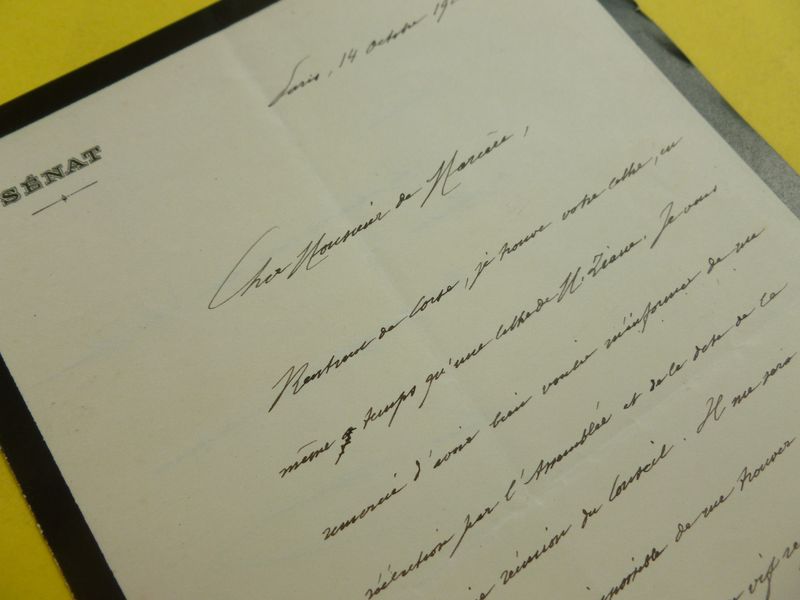 SÉNAT
Paris, 14 Octobre 19
Cher Monsieur de
Rentrant de Corse, je trouve votre lettre, en
même temps qu'une lettre de M. Je vous
remercie d'avoir bien voulu m'informer de ma
réélection par l'Assemblée et de la date de la
réunion du Conseil. Il me sera
impossible de me trouver